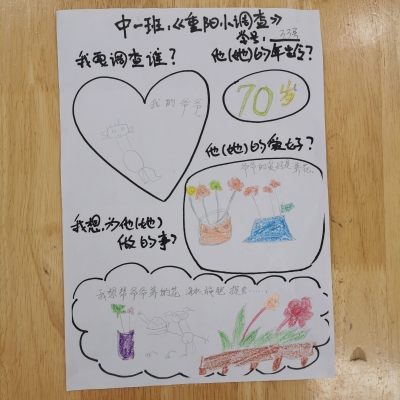 中一班,《重阳小调查》
学生:
我要调查谁?
他(她)的年龄?
我的爷爷
70岁
他(她)的爱好?
爷爷的爱好是养花。
我想,为他(她)
做的事?
我想帮爷爷养的花 浇水 施肥